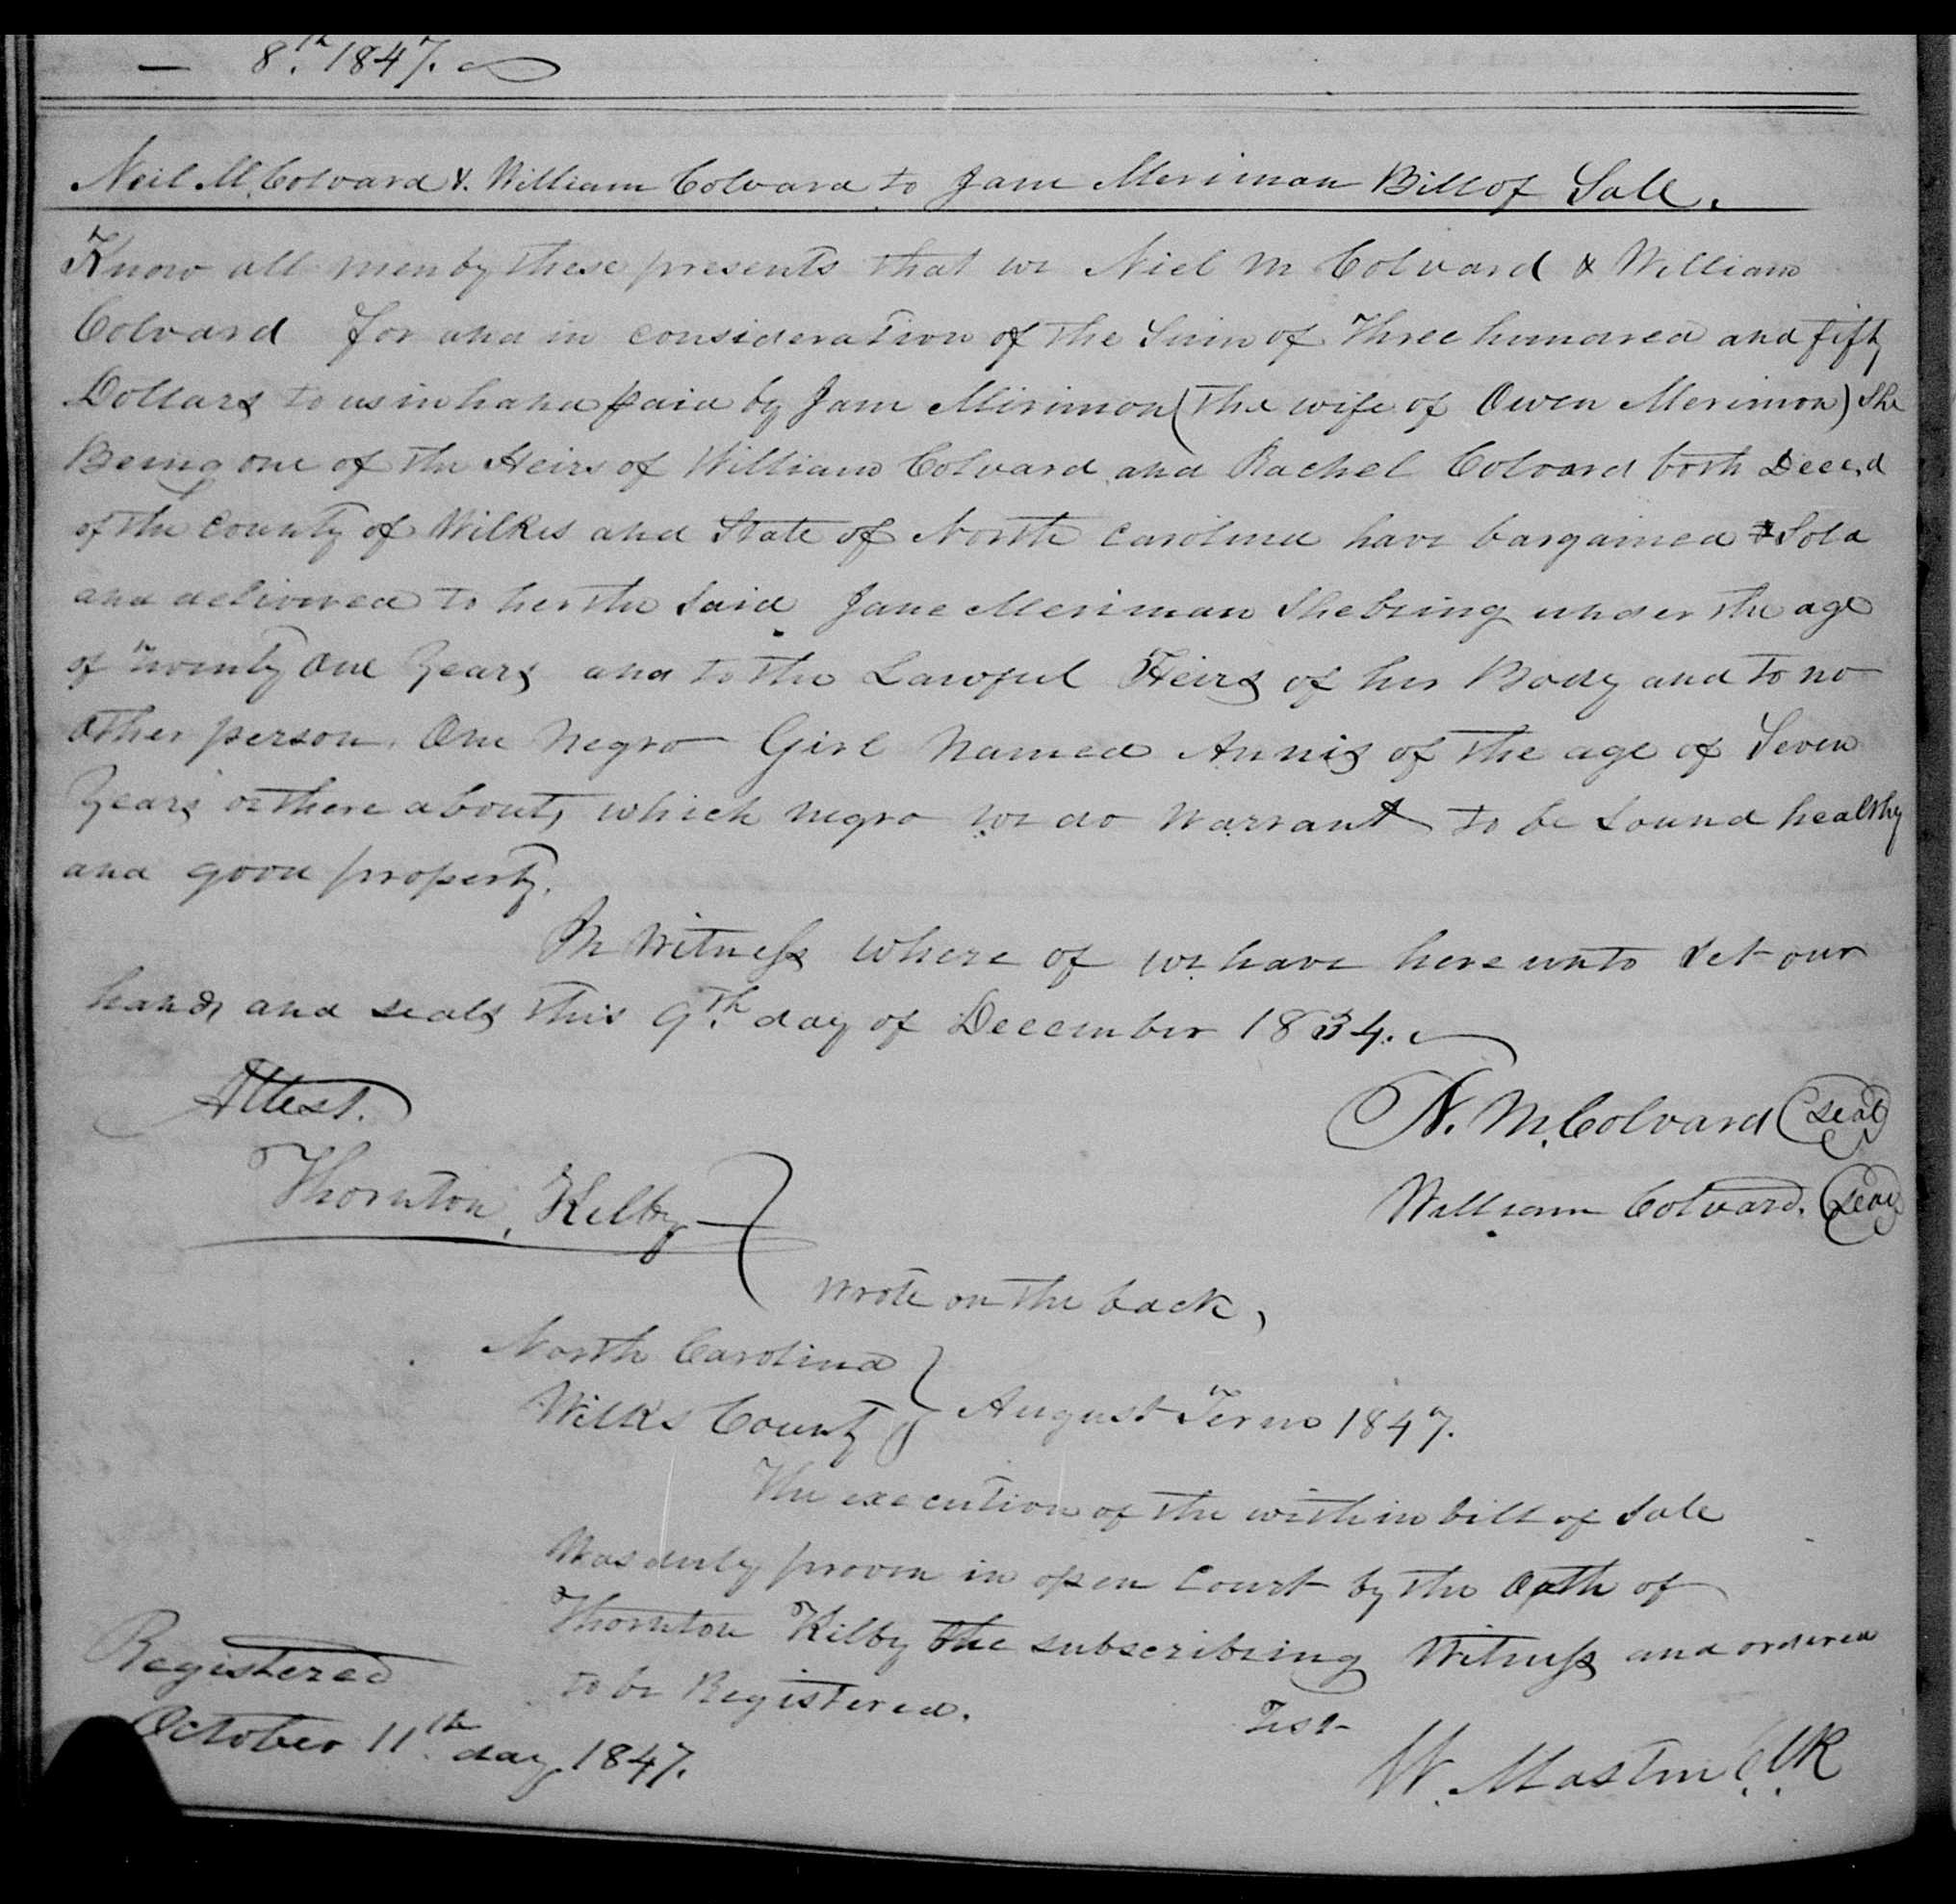 — 8th 1847.
Neil M. Colvard & William Colvard to Jane Meriman Bill of Sale.
Know all men by these presents that we Niel M Colvard & William
Colvard for and in consideration of the Sum of Three hundred and fifty
Dollars to us in hand paid by Jane Merimon (the wife of Owen Merimon) She
Being one of the Heirs of William Colvard and Rachel Colvard both Decd
of the County of Wilkes and State of North Carolina have bargained & Sold
and delivered to her the Said Jane Meriman She being under the age
of Twenty One Years and to the Lawful Heirs of her Body and to no
other person. One Negro Girl Named Annis of the age of Seven
Years or there abouts, which negro we do warrant to be Sound healthy
and good property.
In Witness where of we have here unto Set our
hands and seals this 9th day of December 1834.
Attest.
N. M. Colvard (seal)
Thornton Kilby
William Colvard. (seal)
Wrote on the back,
North Carolina
Wilks County } August Term 1847.
The execution of the within bill of Sale
Was duly proven in open Court by the Oath of
Thornton Kilby the subscribing Witness and ordered
to be Registered.
Test
W. Mastin Clk
Registered
October 11th day 1847.